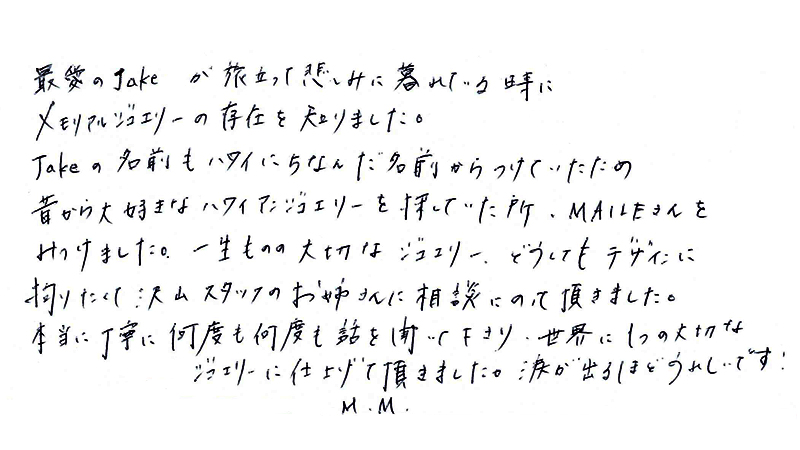 最愛のJake が旅立って悲しみに暮れている時に
メモリアルジュエリーの存在を知りました。
Jakeの名前もハワイにちなんだ名前からつけていたため
昔から大好きなハワイアンジュエリーを探していた所、MAILEさんを
みつけました。一生ものの大切なジュエリー、どうしてもデザインに
拘りたくて沢山スタッフのお姉さんに相談にのって頂きました。
本当に丁寧に何度も何度も話を聞いて下さり、世界に1つの大切な
ジュエリーに仕上げて頂きました。涙が出るほどうれしいです!
M.M.